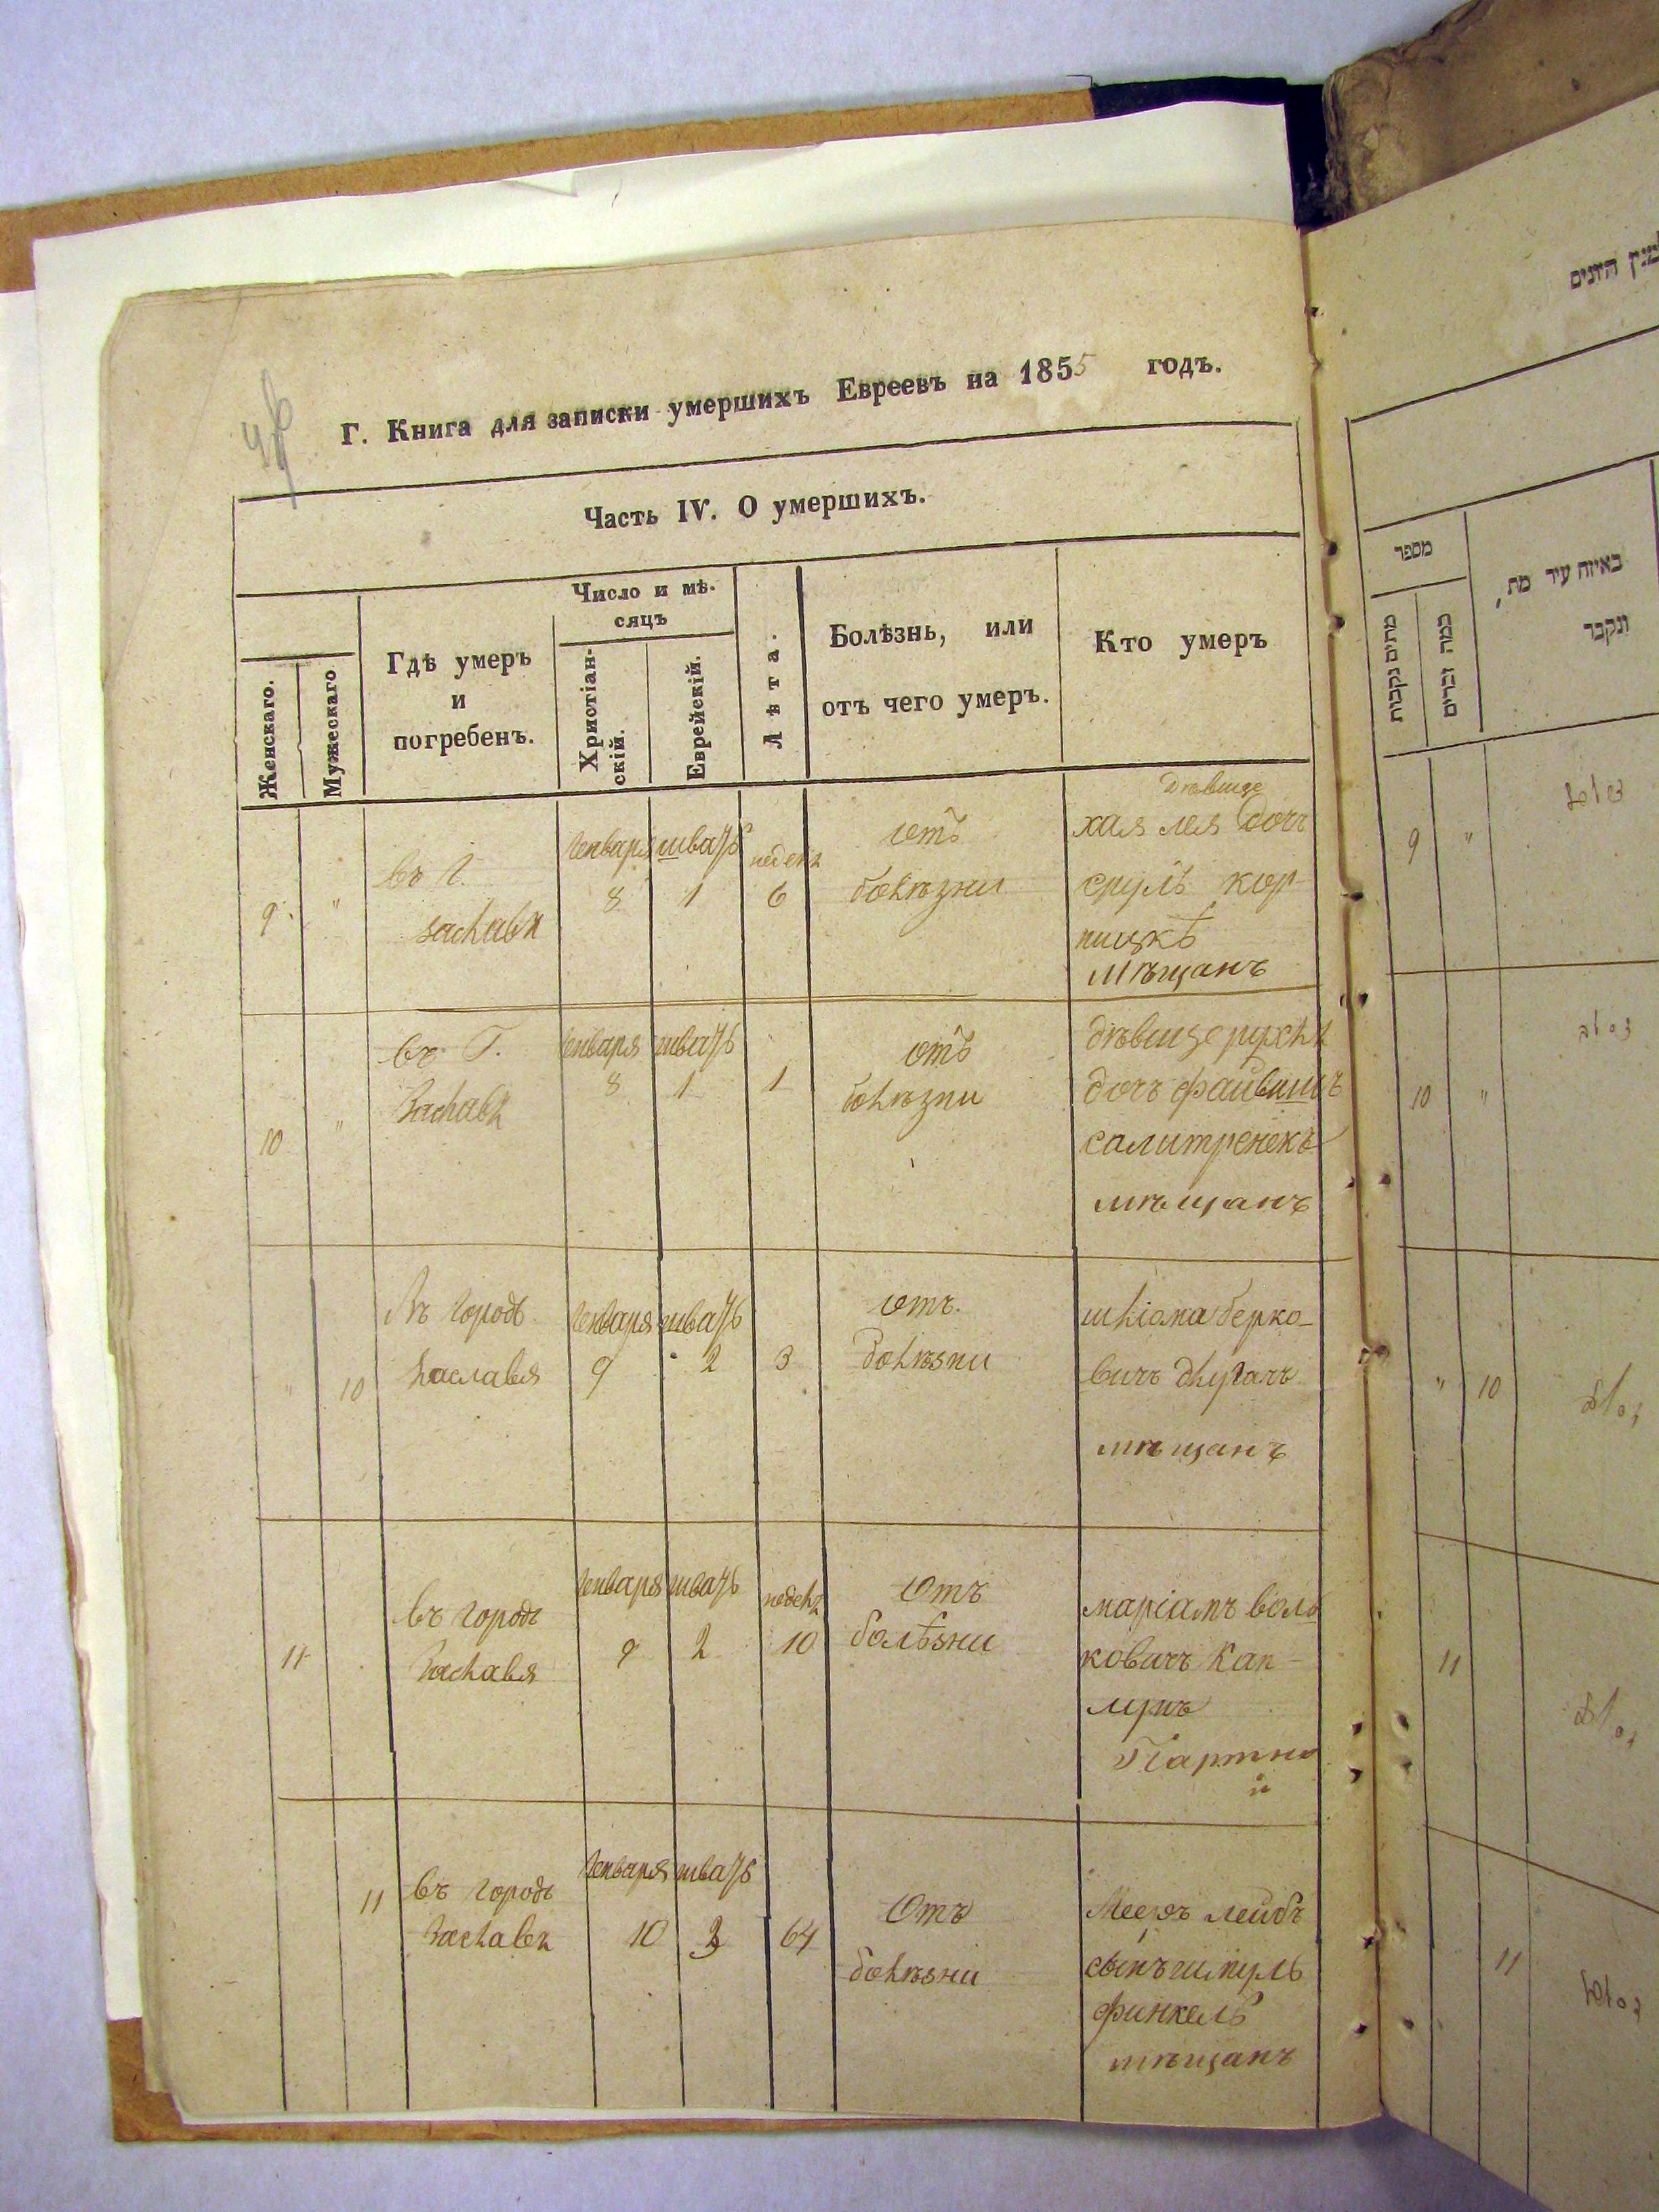 Г. Книга для записки умершихъ Евреевъ на 1855 годъ.
Часть IV. О умершихъ.
Женскаго.
Мужескаго
Гдѣ умеръ
и
погребенъ.
Число и мѣ-
сяцъ
Христіан-
скій.
Еврейскій.
Лѣта.
Болѣзнь, или
отъ чего умеръ.
Кто умеръ
9 "
въ Г.
заславля
Генваря 8
шватъ 1
недель 6
отъ
болѣзни
дѣвице
хая лея дочъ
сруль кор-
ницкъ
мѣщанъ
10 "
въ Г.
Заславля
Генваря 8
шватъ 1
1
отъ
болѣзни
дѣвице рухля
дочъ файвишъ
салитренекъ
мѣщанъ
" 10
Въ городѣ
Заславля
Генваря 9
шватъ 2
3
отъ.
болѣзни
шліома берко-
вичъ длугачъ
мѣщанъ
11
въ городѣ
Заславля
Генваря 9
шватъ 2
недель 10
Отъ
болѣзни
маріамъ воль
ковичъ Кап-
лунъ
11
въ городѣ
Заславля
Генваря 10
шватъ 3
64
Отъ
болѣзни
Мееръ лейбъ
сынъ шмуль
финкель
мѣщанъ
מספר
מתים נקבות
כמה זכרים
באיזה עיר מת,
ונקבר
9 "
10 "
" 10
11
11